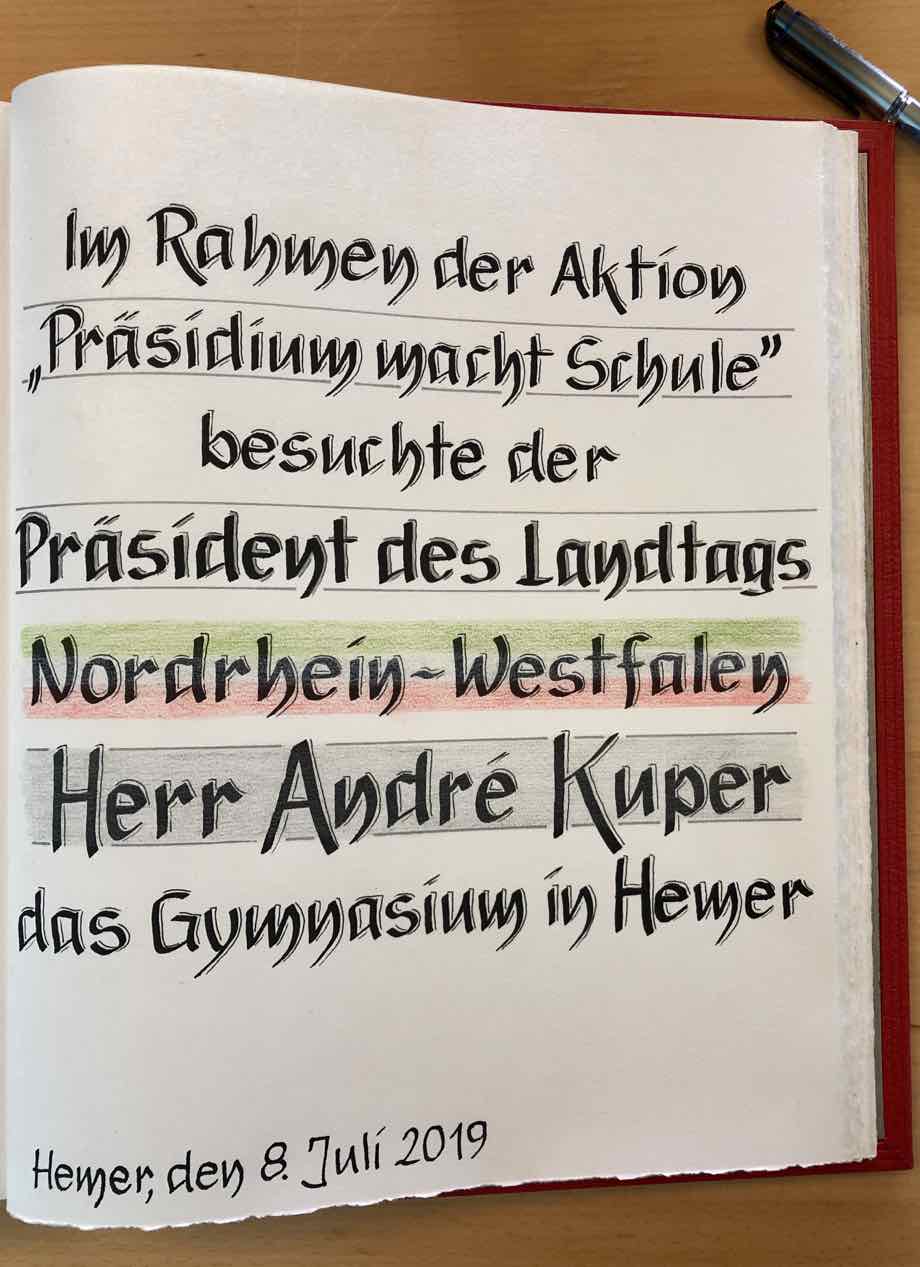 Im Rahmen der Aktion
„Präsidium macht Schule”
besuchte der
Präsident des Landtags
Nordrhein-Westfalen
Herr André Kuper
das Gymnasium in Hemer
Hemer, den 8. Juli 2019